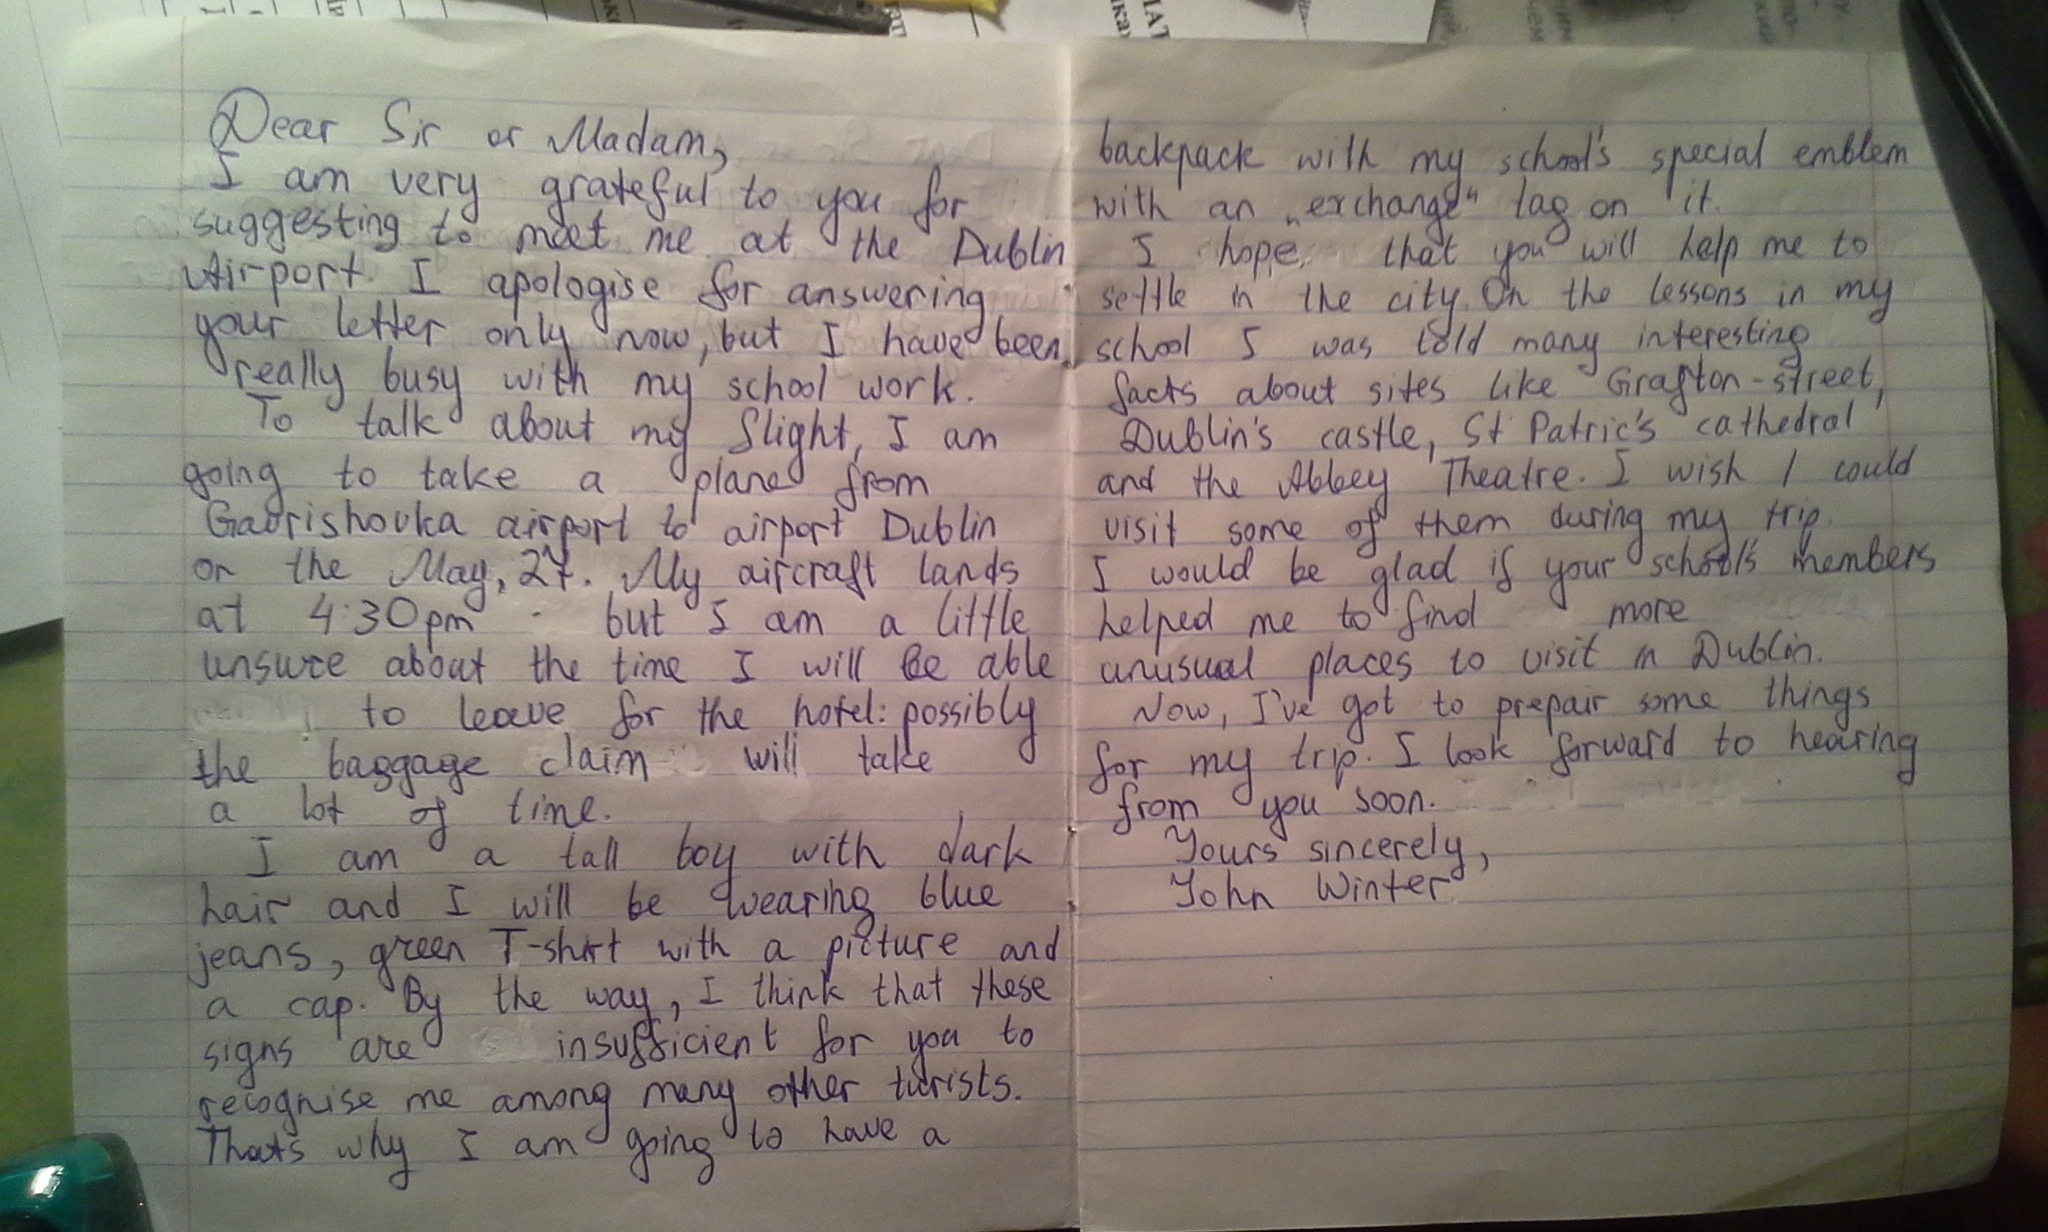 Dear Sir or Madam,
I am very grateful to you for
suggesting to meet me at the Dublin
Airport. I apologise for answering
your letter only now, but I have been
really busy with my school work.
To talk about my flight, I am
going to take a plane from
Gavrishovka airport to airport Dublin
on the May, 27. My aircraft lands
at 4:30pm but I am a little
unsure about the time I will be able
to leave for the hotel: possibly
the baggage claim will take
a lot of time.
I am a tall boy with dark
hair and I will be wearing blue
jeans, green T-shirt with a picture and
a cap. By the way, I think that these
signs are insufficient for you to
recognise me among many other turists.
Thats why I am going to have a
backpack with my school's special emblem
with an „exchange" tag on it.
I hope, that you will help me to
settle in the city. On the lessons in my
school I was told many interesting
facts about sites like Grafton-street,
Dublin's castle, St Patric's cathedral
and the Abbey Theatre. I wish I could
visit some of them during my trip.
I would be glad if your school's members
helped me to find more
unusual places to visit in Dublin.
Now, I've got to prepair some things
for my trip. I look forward to hearing
from you soon.
Yours sincerely,
John Winter